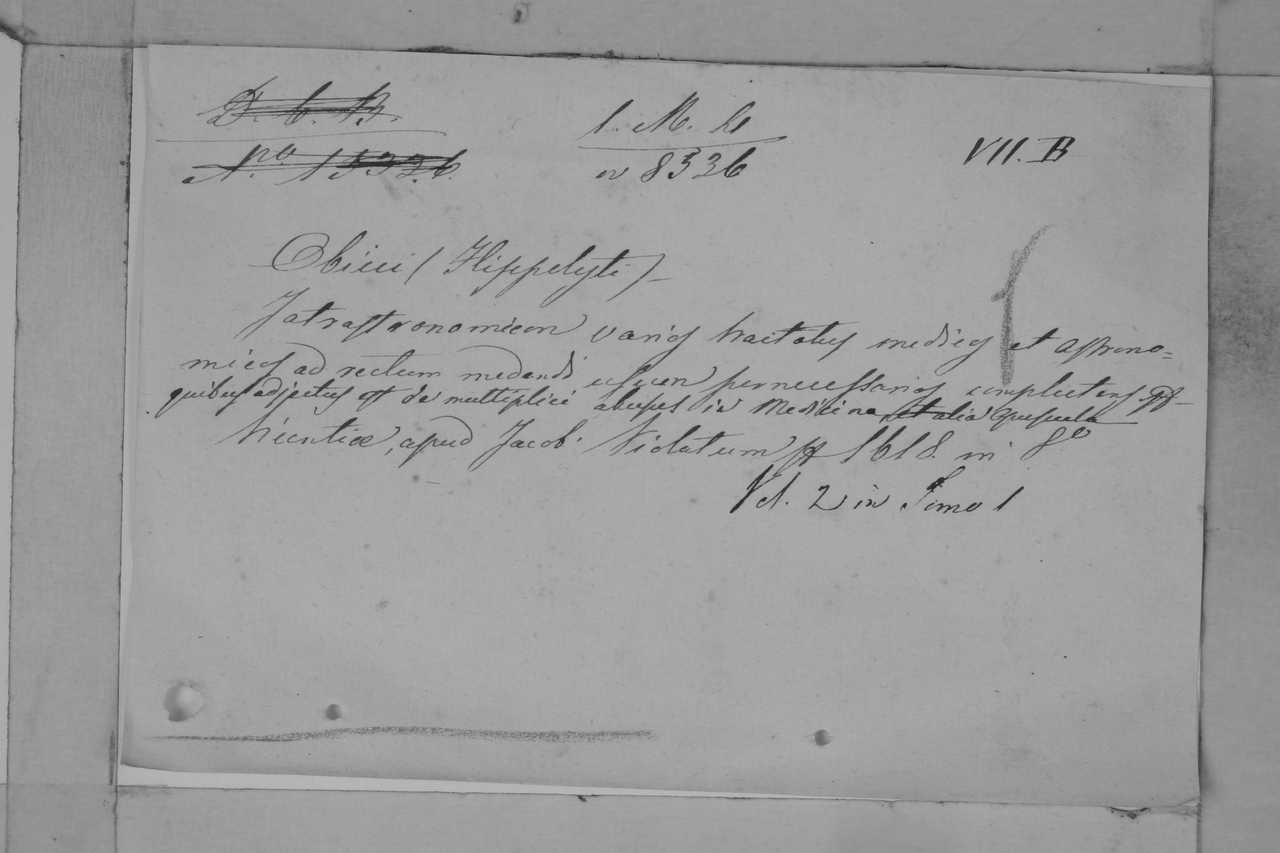 D. C. B. 1. M. h VII. B
N.ro 15326. n 8336
Obicci (Hippolyti)
Jatrastronomicon varios tractatus medicos et astrono=
micos ad rectum medendi usum pernecessarios complectens
quibus adjectus est de multiplici abusus in Medicina et alia Opuscula
Vicentiæ, apud Jacob. Violatum 1618. in 8o
Vol. 2 in Tomo 1